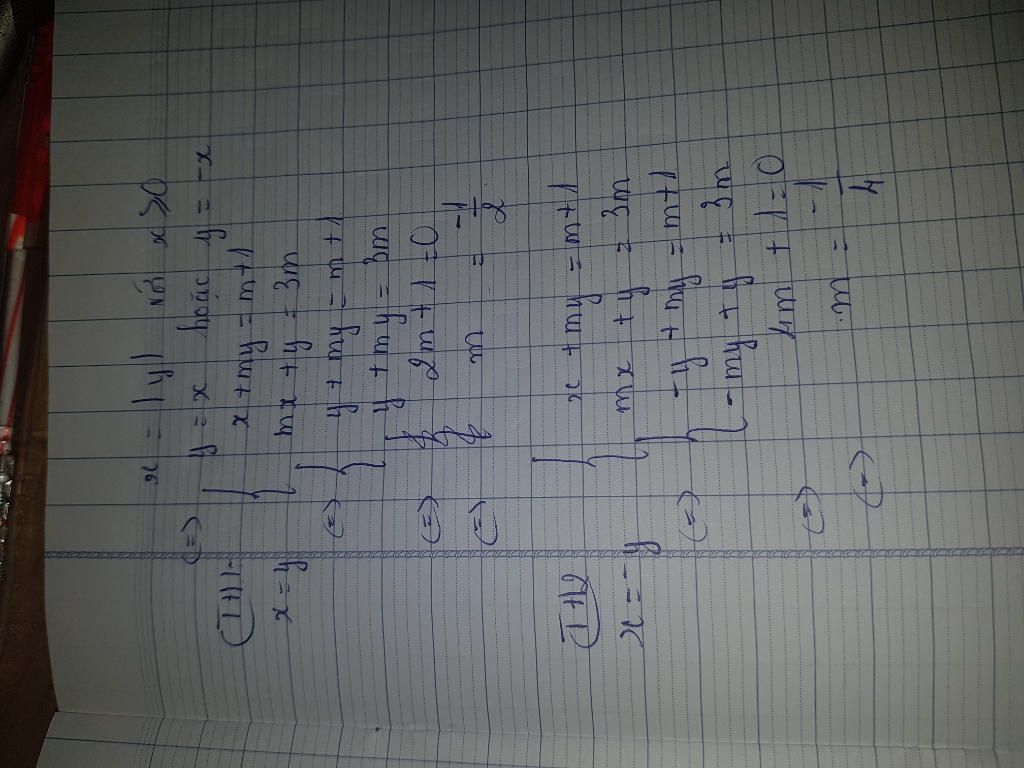 x = |y| với x > 0
(=) y = x hoặc y = -x
TH1: { x + my = m + 1
x = y { mx + y = 3m
(=) { y + my = m + 1
{ y + my = 3m
(=) 2m + 1 = 0
(=) m = -1/2
TH2 { x + my = m + 1
x = -y { mx + y = 3m
(=) { -y + my = m + 1
{ -my + y = 3m
(=) 4m + 1 = 0
(=) m = -1/4